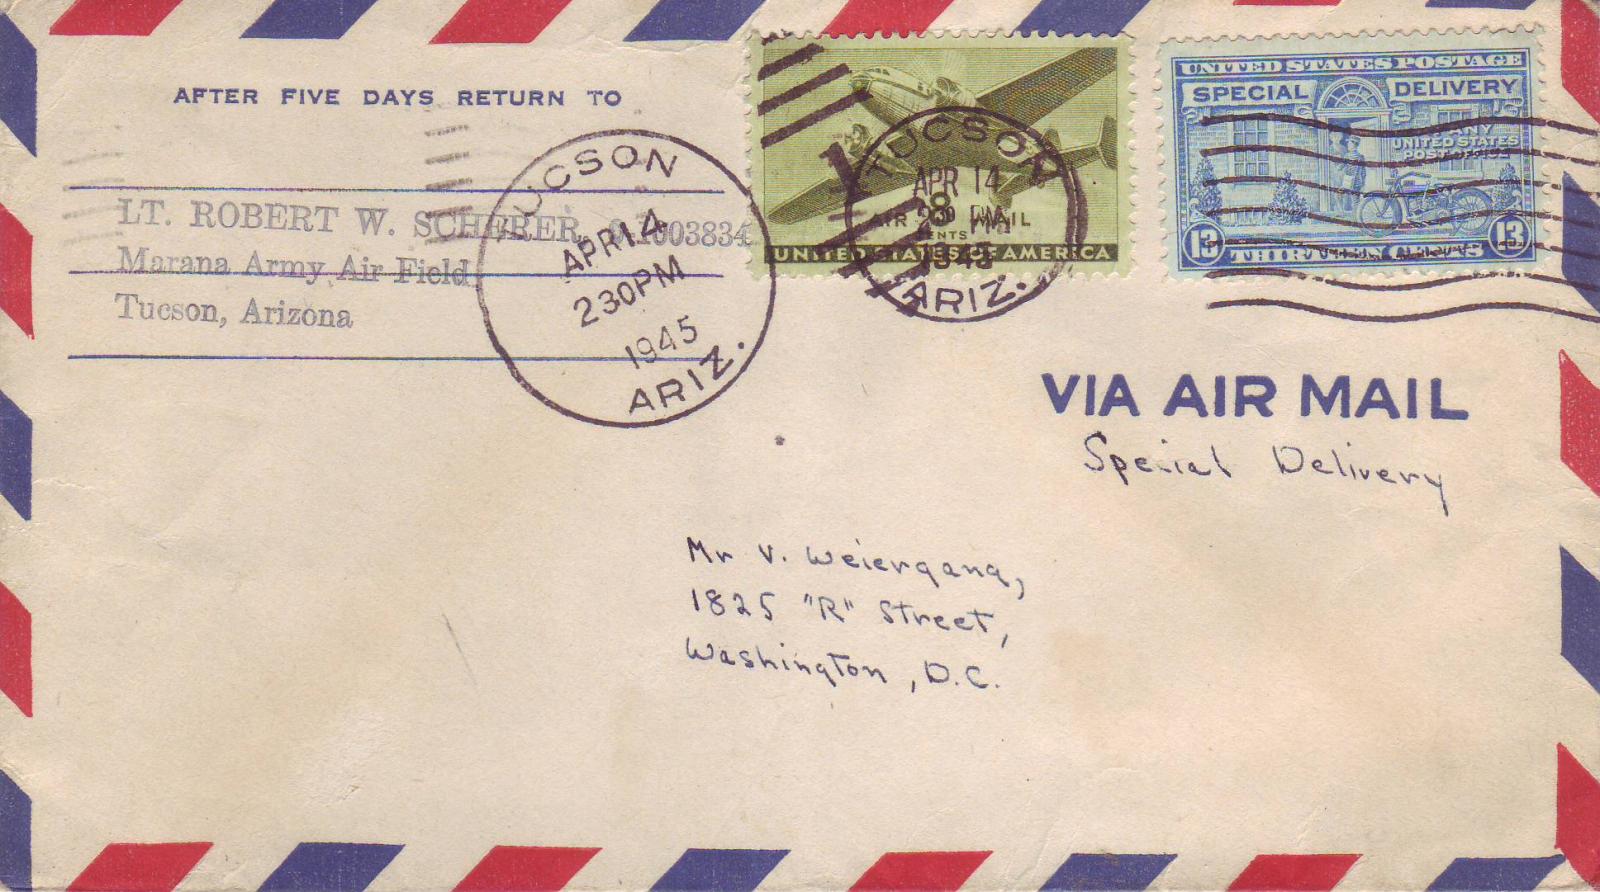 AFTER FIVE DAYS RETURN TO
LT. ROBERT W. SCHERER, O-1003834
Marana Army Air Field
Tucson, Arizona
TUCSON
APR 14
230PM
1945
ARIZ.
AIR MAIL
8 CENTS
UNITED STATES OF AMERICA
TUCSON
APR 14
230 PM
1945
ARIZ.
1
UNITED STATES POSTAGE
SPECIAL DELIVERY
AT ANY
UNITED STATES
POST OFFICE
13 THIRTEEN CENTS 13
VIA AIR MAIL
Special Delivery
Mr V. Weiergang,
1825 "R" Street,
Washington, D.C.